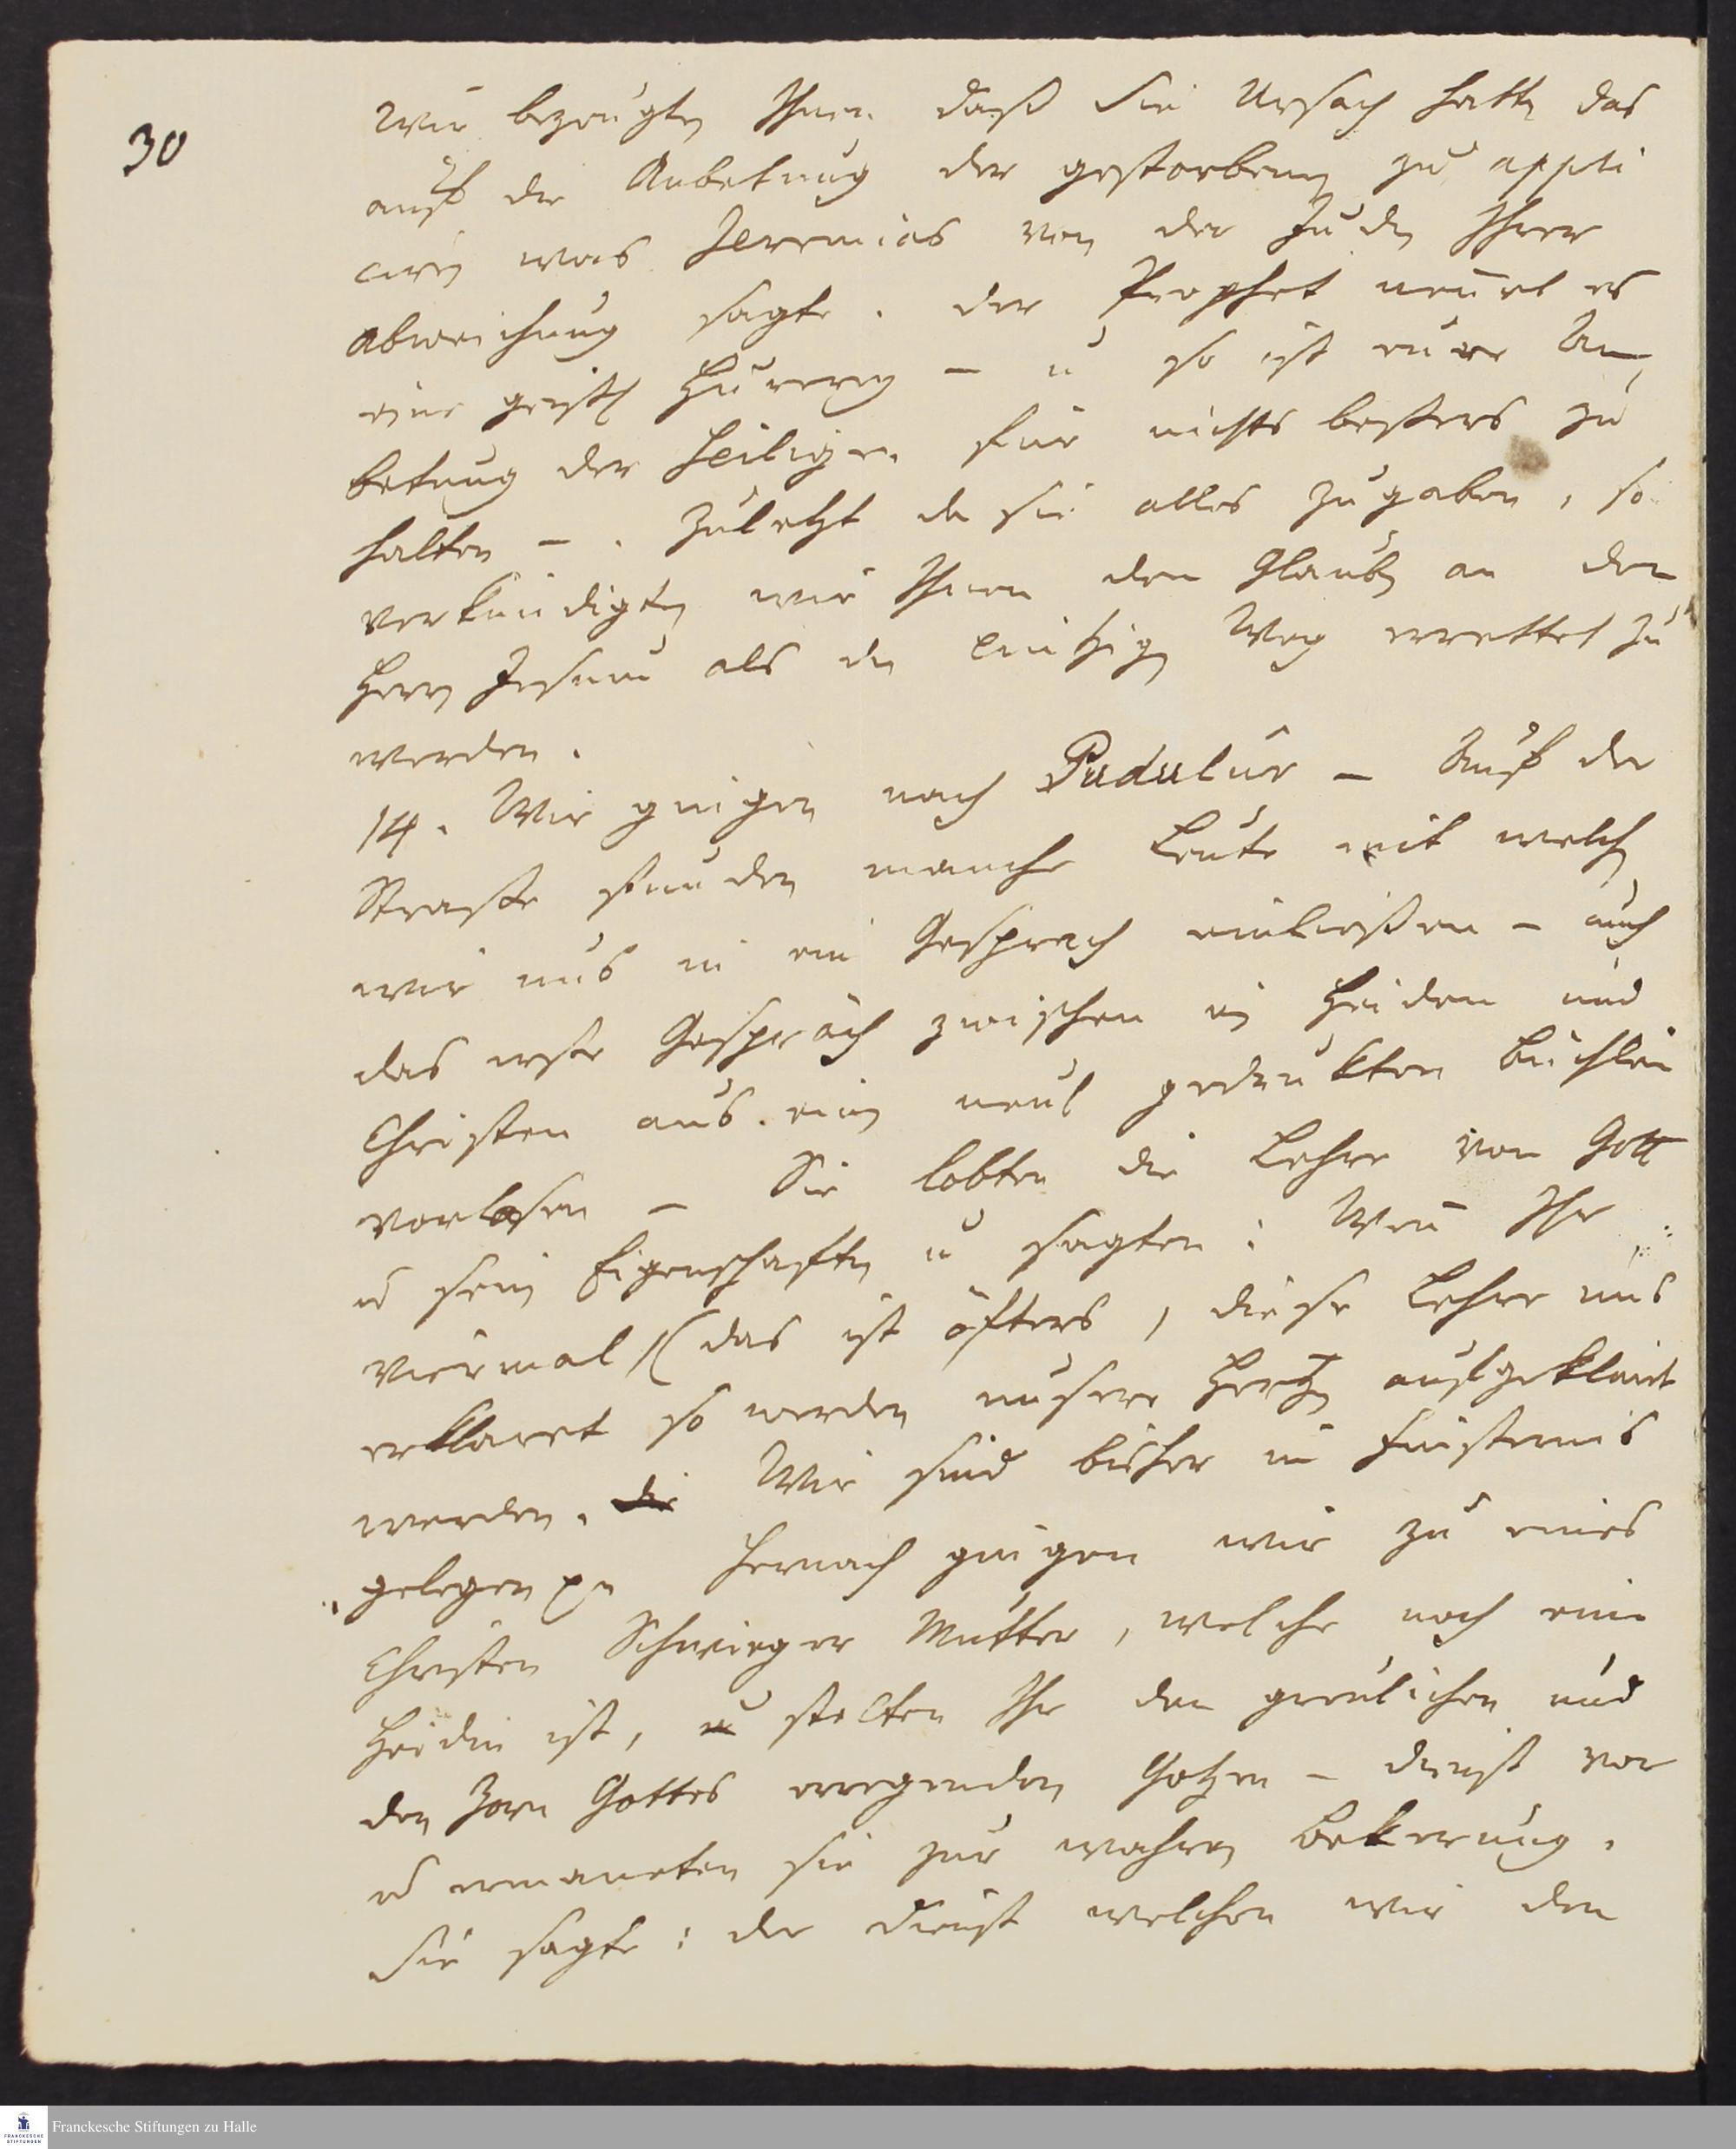 30
Wir bezeugten Ihnen daß Sie Ursach hatten das
auf die Anbetung der gestorbenen zu appli
ciren was Jeremias von der Juden Ihrer
abweichung sagte. der Prophet nennet es
eine geistl Hurerey – u so ist eure An¬
betung der Heiligen für nichts bessers zu
halten –. Zuletzt da sie alles zugaben, so
verkündigten wir Ihnen den Glauben an den
Herrn Jesum als den eintzigen Weg errettet zu
werden.
14. Wir giengen nach Padalur – Auf der
Straße stunden manche Leute mit welchen
wir uns in ein Gesprech einließen – auch
das erste Gespräch zwischen einem Heiden und
Christen aus einem neul gedrukten Büchlein
vorlasen – Sie lobten die Lehre von Gott
u seinen Eigenschaften u sagten: Wenn Ihr
viermal (das ist öfters, diese Lehre uns
erklaret so werden unsere Hertzen aufgeklärt
werden. die Wir sind bisher in Finsternis
gelegen pp Hernach giengen wir zu eines
Christen Schwieger Mutter, welche noch eine
Heidin ist, u stelten Ihr den greulichen und
den Zorn Gottes erregenden Götzen – dienst vor
u ermaneten sie zur wahren Bekerung.
Sie sagte: der dienst welchen wir den
Franckesche Stiftungen zu Halle